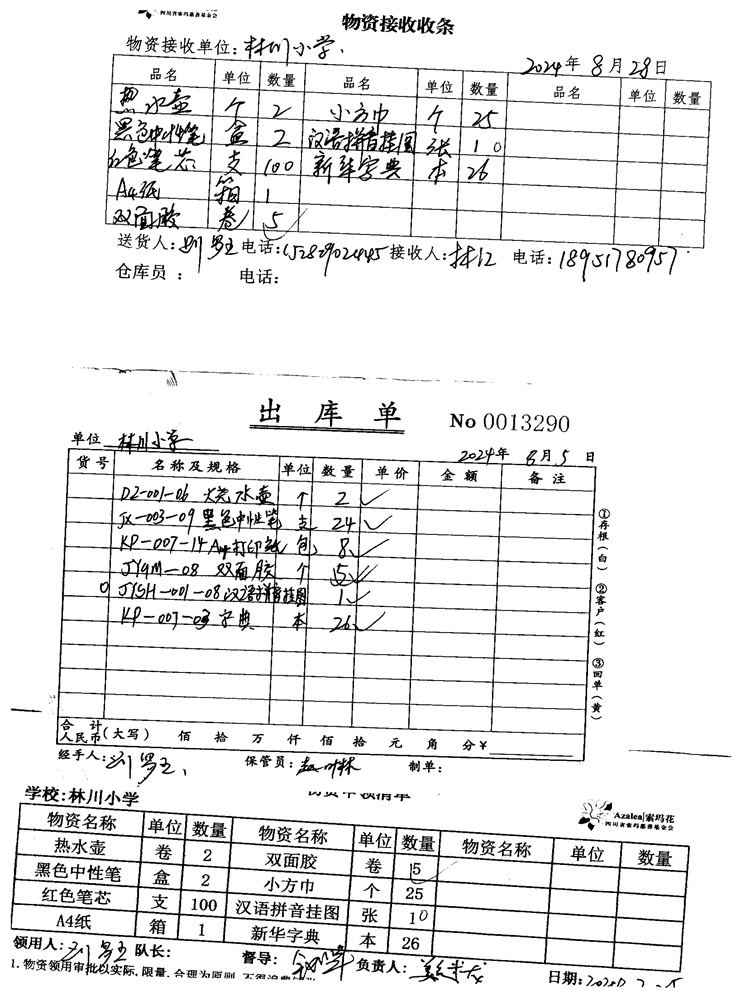 四川省索玛慈善基金会
物资接收收条
物资接收单位:林川小学、
2024年 8月 28日
品名 单位 数量 品名 单位 数量 品名 单位 数量
热水壶 个 2 小方巾 个 25
黑色中性笔 盒 2 汉语拼音挂图 张 10
红色笔芯 支 100 新华字典 本 26
A4纸 箱 1
双面胶 卷 5
送货人: 电话:15282902445 接收人:林江 电话:18951780957
仓库员 : 电话:
出库单 No 0013290
单位 林川小学
2024年 8月 5日
货号 名称及规格 单位 数量 单价 金额 备注
D2-001-06 烧水壶 个 2 ✓
JX-003-09 黑色中性笔 支 24 ✓
KP-007-14 A4打印纸 包 8 ✓
JYGM-08 双面胶 个 5 ✓
0 JYSH-001-08 汉语拼音挂图 1 ✓
KP-007-03 字典 本 26 ✓
①存根(白) ②客户(红) ③回单(黄)
合计人民币(大写) 佰 拾 万 仟 佰 拾 元 角 分 ¥
经手人: 保管员: 制单:
学校:林川小学
Azalea|索玛花
四川省索玛慈善基金会
物资名称 单位 数量 物资名称 单位 数量 物资名称 单位 数量
热水壶 卷 2 双面胶 卷 5
黑色中性笔 盒 2 小方巾 个 25
红色笔芯 支 100 汉语拼音挂图 张 10
A4纸 箱 1 新华字典 本 26
领用人: 队长: 督导: 负责人:
1.物资领用审批以实际,限量,合理为原则
日期: